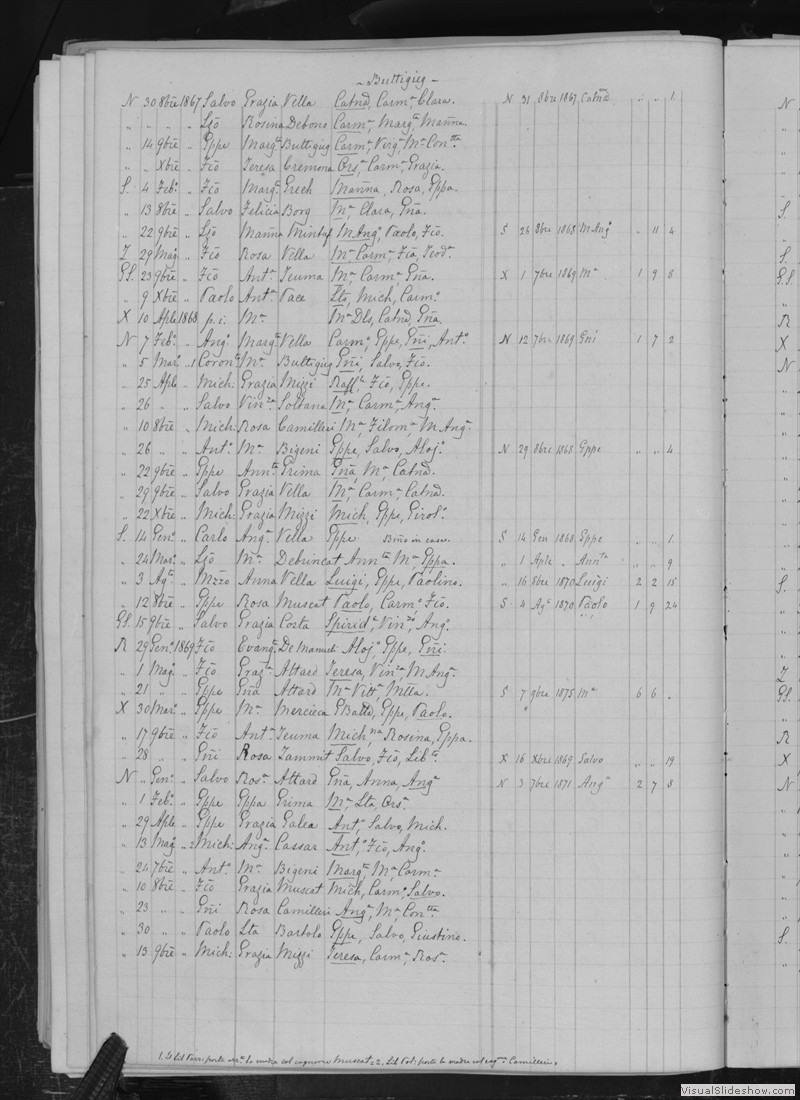 ~ Buttigieg ~
N 30 8bre 1867 Salvo Grazia Vella Catnd, Carma, Clara. N 31 8bre 1867 Catnd „ „ 1.
„ „ „ „ Ljo Rosina Debono Carma, Marga, Marnna.
„ 14 9bre „ Gppe Marga Buttigieg Carma, Virga, Ma Contta
„ „ Xbre „ Fco Teresa Cremona Crs, Carma, Grazia.
S. 4 Feb. „ Fco Marga Grech Marnna, Rosa, Gppa.
„ 13 8bre „ Salvo Felicia Borg Ma, Clara, Gna.
„ 22 9bre „ Ljo Marnna M Anga, Paolo, Fco. S 26 8bre 1868 M Anga „ 11 4
Z 29 Mag. „ Fco Rosa Vella Ma Carma, Fca, Teoda.
GS. 23 9bre „ Fco Anta Teuma Ma, Carma, Gna. X 1 7bre 1869 Ma 1 9 8
„ 9 Xbre „ Paolo Anta Pace Lta, Mich, Carmo.
X 10 Aple 1868 p. i. Ma Ma Dls, Catnd, Gna.
N 7 Feb. „ Ango Marga Vella Carmo, Gppe, Gni, Anto. N 12 7bre 1869 Gni 1 7 2
„ 5 Mar. „ 1 Corono Ma Buttigieg Gni, Salvo, Fco.
„ 25 Aple „ Mich: Grazia Mizzi Raffla, Fco, Gppe.
„ 26 „ „ Salvo Vinza Soltana Ma, Carma, Anga.
„ 10 8bre „ Mich: Rosa Camilleri Ma, Filoma, M Anga.
„ 26 „ „ Anto Ma Bigeni Gppe, Salvo, Alojo. N 29 8bre 1868 Gppe „ „ 4
„ 22 9bre „ Gppe Annta Grima Gna, Ma, Catnd.
„ 29 9bre „ Salvo Grazia Vella Ma, Carma, Catnd.
„ 22 Xbre „ Mich: Grazia Mizzi Mich, Gppe, Girolo.
S. 14 Gen. „ Carlo Anga Vella Gppe in casa. S 14 Gen 1868 Gppe „ „ 1.
„ 24 Mar. „ Ljo Ma Debrincat Annta, Ma, Gppa. „ 1 Aple „ Annta „ „ 9
„ 3 Ago „ Mzzo Anna Vella Luigi, Gppe, Paolino. „ 16 8bre 1870 Luigi 2 2 15
„ 12 8bre „ Gppe Rosa Muscat Paolo, Carmo, Fco. S 4 Ago 1870 Paolo 1 9 24
GS. 15 9bre „ Salvo Grazia Costa Spirid, Vinzo, Ango.
R 29 Gen. 1869 Fco Evanga De Manueli Alojo, Gppe, Gni.
„ 1 Mag. „ Fco Graza Attard Teresa, Vinza, M Anga.
„ 21 „ „ Gppe Gna Attard Ma Vitta, Mlla. S 7 9bre 1875 Ma 6 6 .
X 30 Mar. „ Gppe Ma Mercieca GBatta, Gppe, Paolo.
„ 17 9bre „ Fco Anta Teuma Michna, Rosina, Gppa.
„ 28 „ „ Gni Rosa Zammit Salvo, Fco, Libto. X 16 Xbre 1869 Salvo „ „ 19
N „ Gen. „ Salvo Rosa Attard Gna, Anna, Anga N 3 7bre 1871 Anga 2 7 8
„ 1 Feb. „ Gppe Gppa Grima Ma, Lta, Crs.
„ 29 Aple „ Gppe Grazia Galea Anto, Salvo, Mich.
„ 13 Mag. „ 2 Mich: Anga Cassar Anto, Fco, Ango.
„ 24 7bre „ Anto Ma Bigeni Marga, Ma, Carma.
„ 10 8bre „ Fco Grazia Muscat Mich, Carmo, Salvo.
„ 23 „ „ Gni Rosa Camilleri Anga, Ma Contta
„ 30 „ „ Paolo Lta Bartolo Gppe, Salvo, Giustino.
„ 13 9bre „ Mich: Grazia Mizzi Teresa, Carma, Rosa.
1. Il Lib Parr: porta la madre col cognome Muscat. 2. Lib Bat: porta la madre col cogn. Camilleri.
VisualSlideshow.com